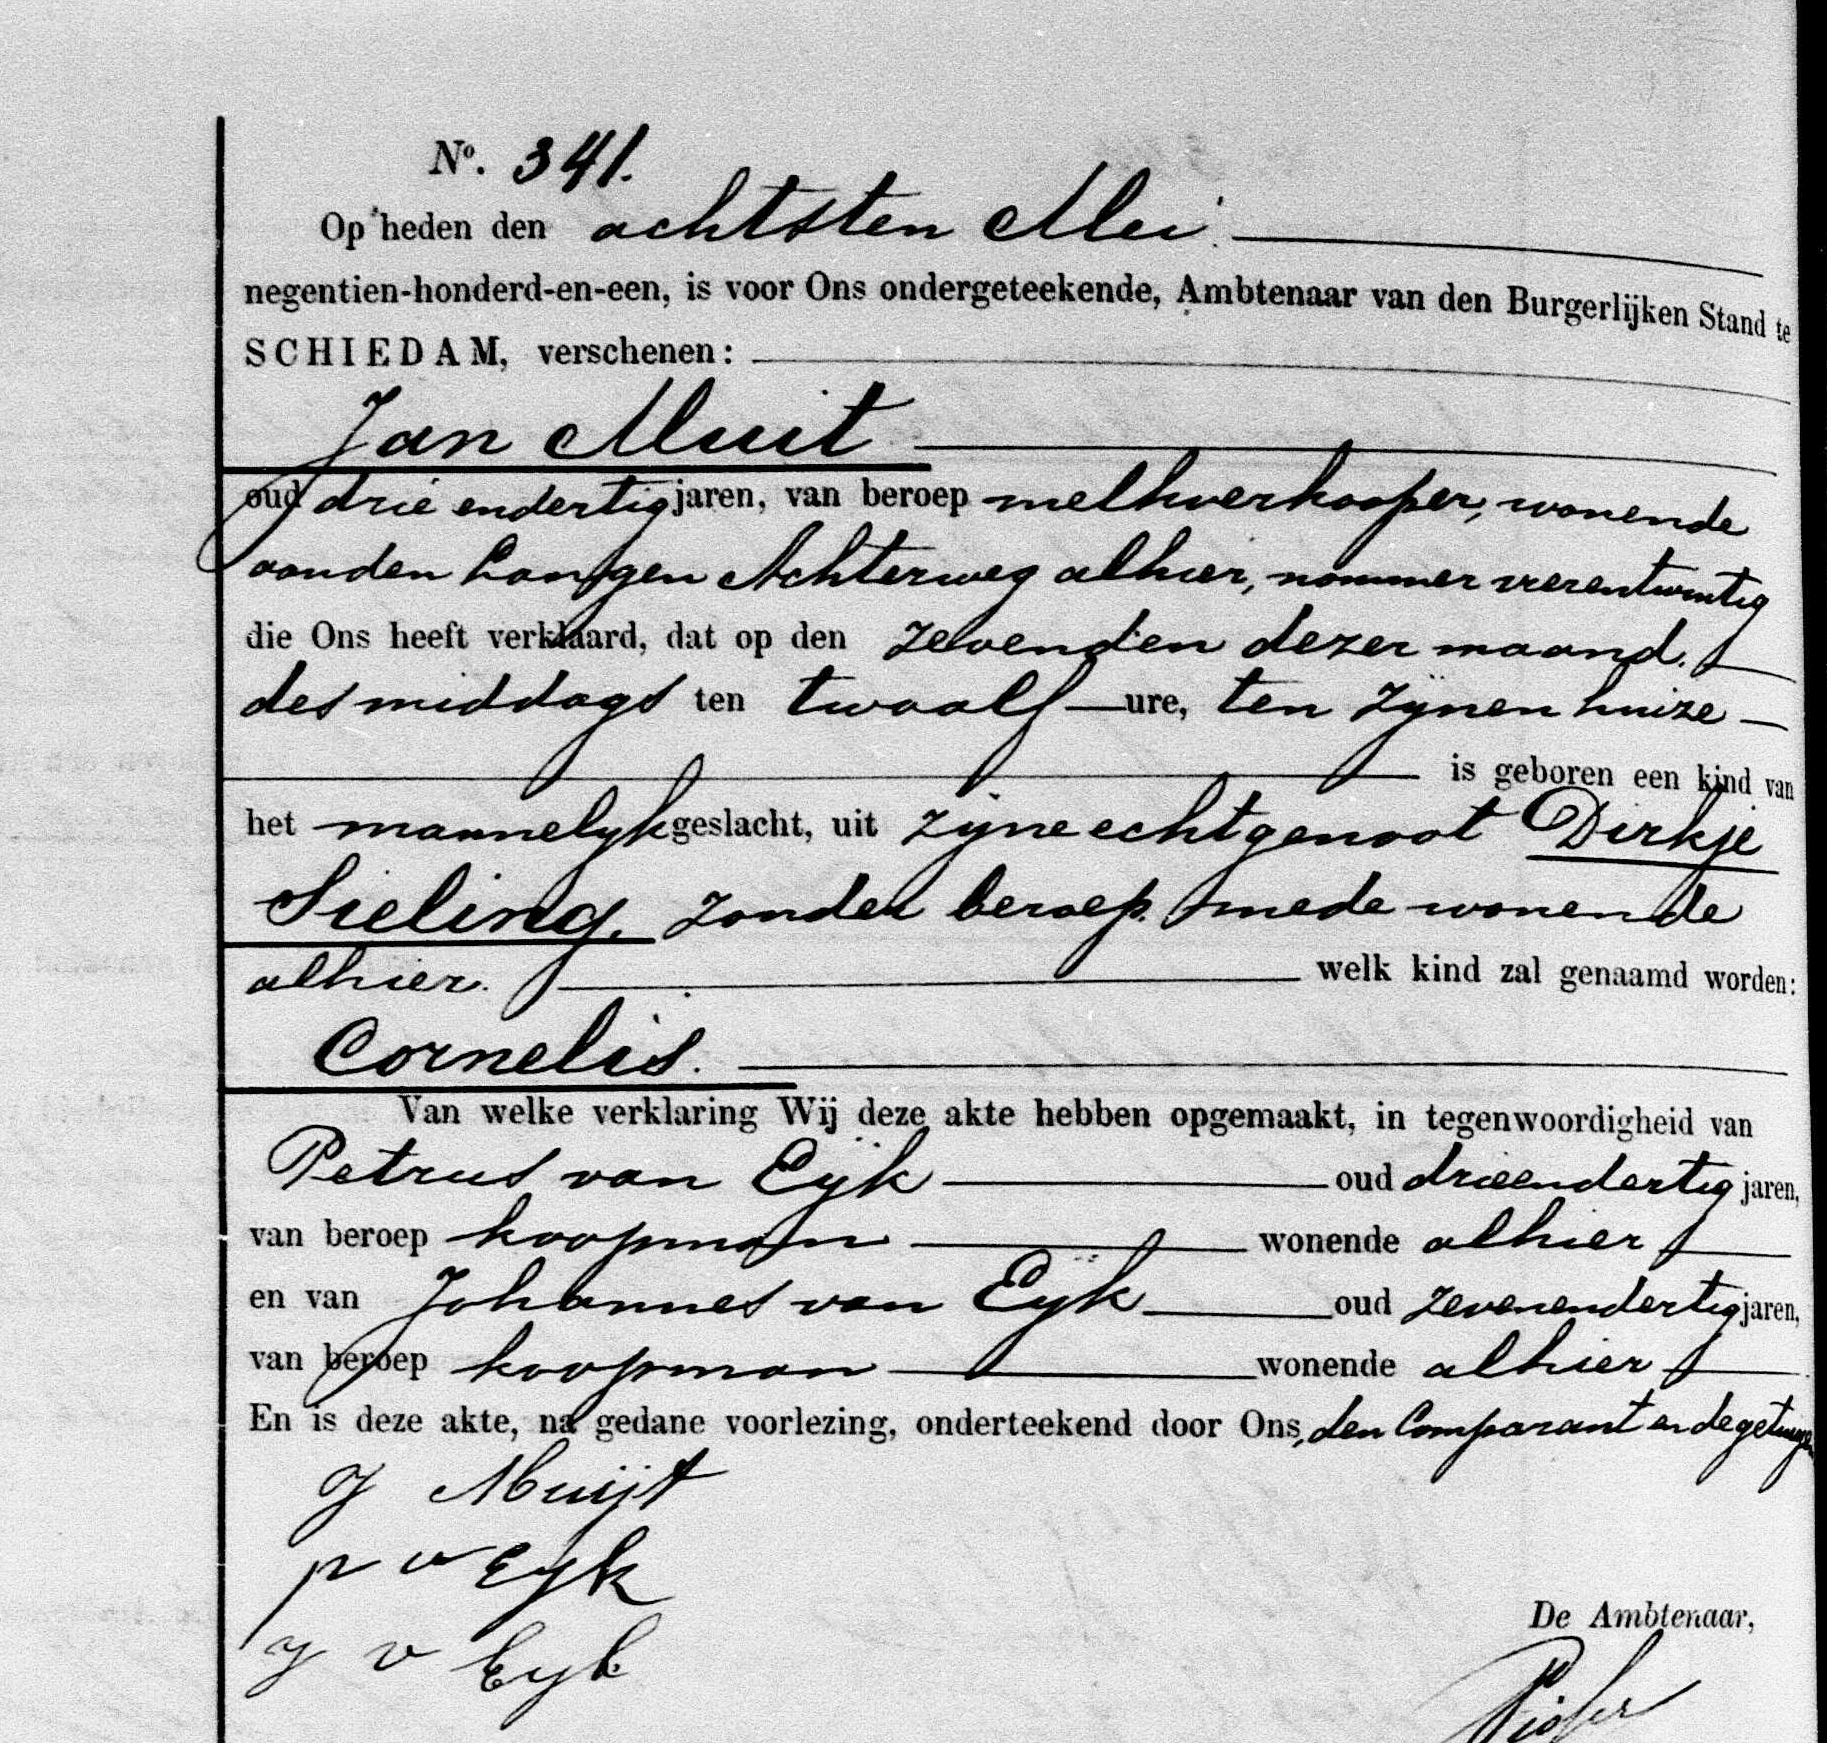 No. 341.
Op heden den achtsten Mei.
negentien-honderd-en-een, is voor Ons ondergeteekende, Ambtenaar van den Burgerlijken Stand te
SCHIEDAM, verschenen:
Jan Muit
oud drie endertig jaren, van beroep melkverkooper, wonende
aanden Langen Achterweg alhier, nommer vierentwintig
die Ons heeft verklaard, dat op den zevenden dezer maand.
des middags ten twaalf ure, ten zijnen huize
is geboren een kind van
het mannelyk geslacht, uit zijne echtgenoot Dirkje
Sieling, zonder beroep. mede wonende
alhier. welk kind zal genaamd worden:
Cornelis.
Van welke verklaring Wij deze akte hebben opgemaakt, in tegenwoordigheid van
Petrus van Eÿk oud drieendertig jaren,
van beroep koopman wonende alhier
en van Johannes van Eÿk oud zevenendertig jaren,
van beroep koopman wonende alhier
En is deze akte, na gedane voorlezing, onderteekend door Ons, den Comparant en de getuigen
J Muijt
P v Eyk
J v Eyk
De Ambtenaar,